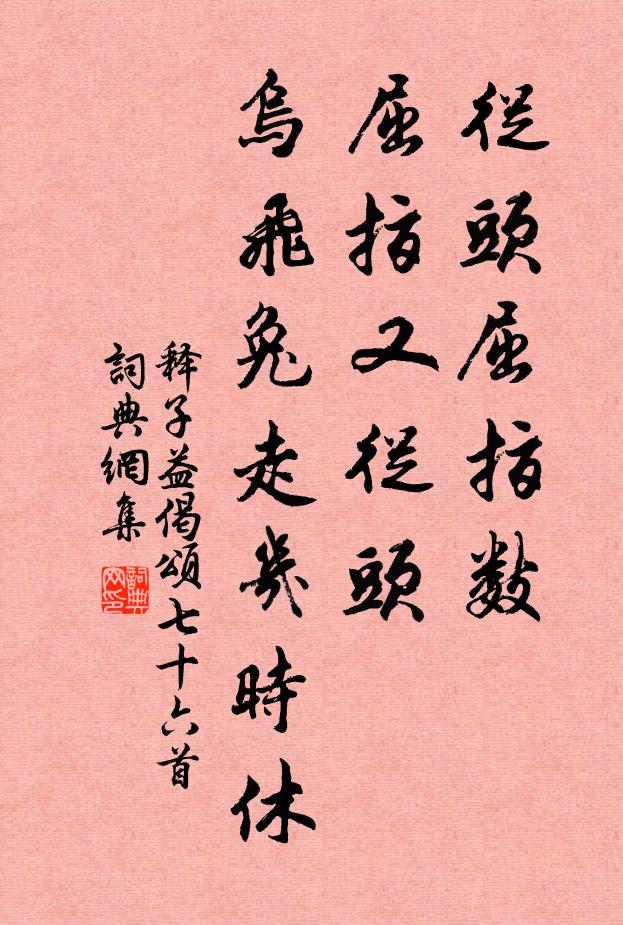 從頭屈指数
屈指又從頭
烏飛兔走幾時休
释子益偈頌七十六首
詞典網集
詞典网印